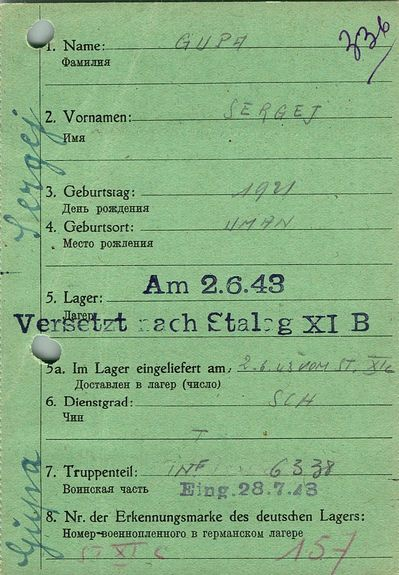 336
1. Name: GUPA
Фамилия
2. Vornamen: SERGEJ
Имя
3. Geburtstag: 1921
День рождения
4. Geburtsort: UMAN
Место рождения
Am 2.6.43
5. Lager:
Лагерь
Versetzt nach Stalag XI B
5a. Im Lager eingeliefert am: 2.6.43 VOM ST. XI C
Доставлен в лагер (число)
6. Dienstgrad: SCH
Чин
I
7. Truppenteil: INF 6338
Воинская часть
Eing. 28.7.43
8. Nr. der Erkennungsmarke des deutschen Lagers:
Номер военнопленного в германском лагере
ST XI C 157
Gupa Sergej